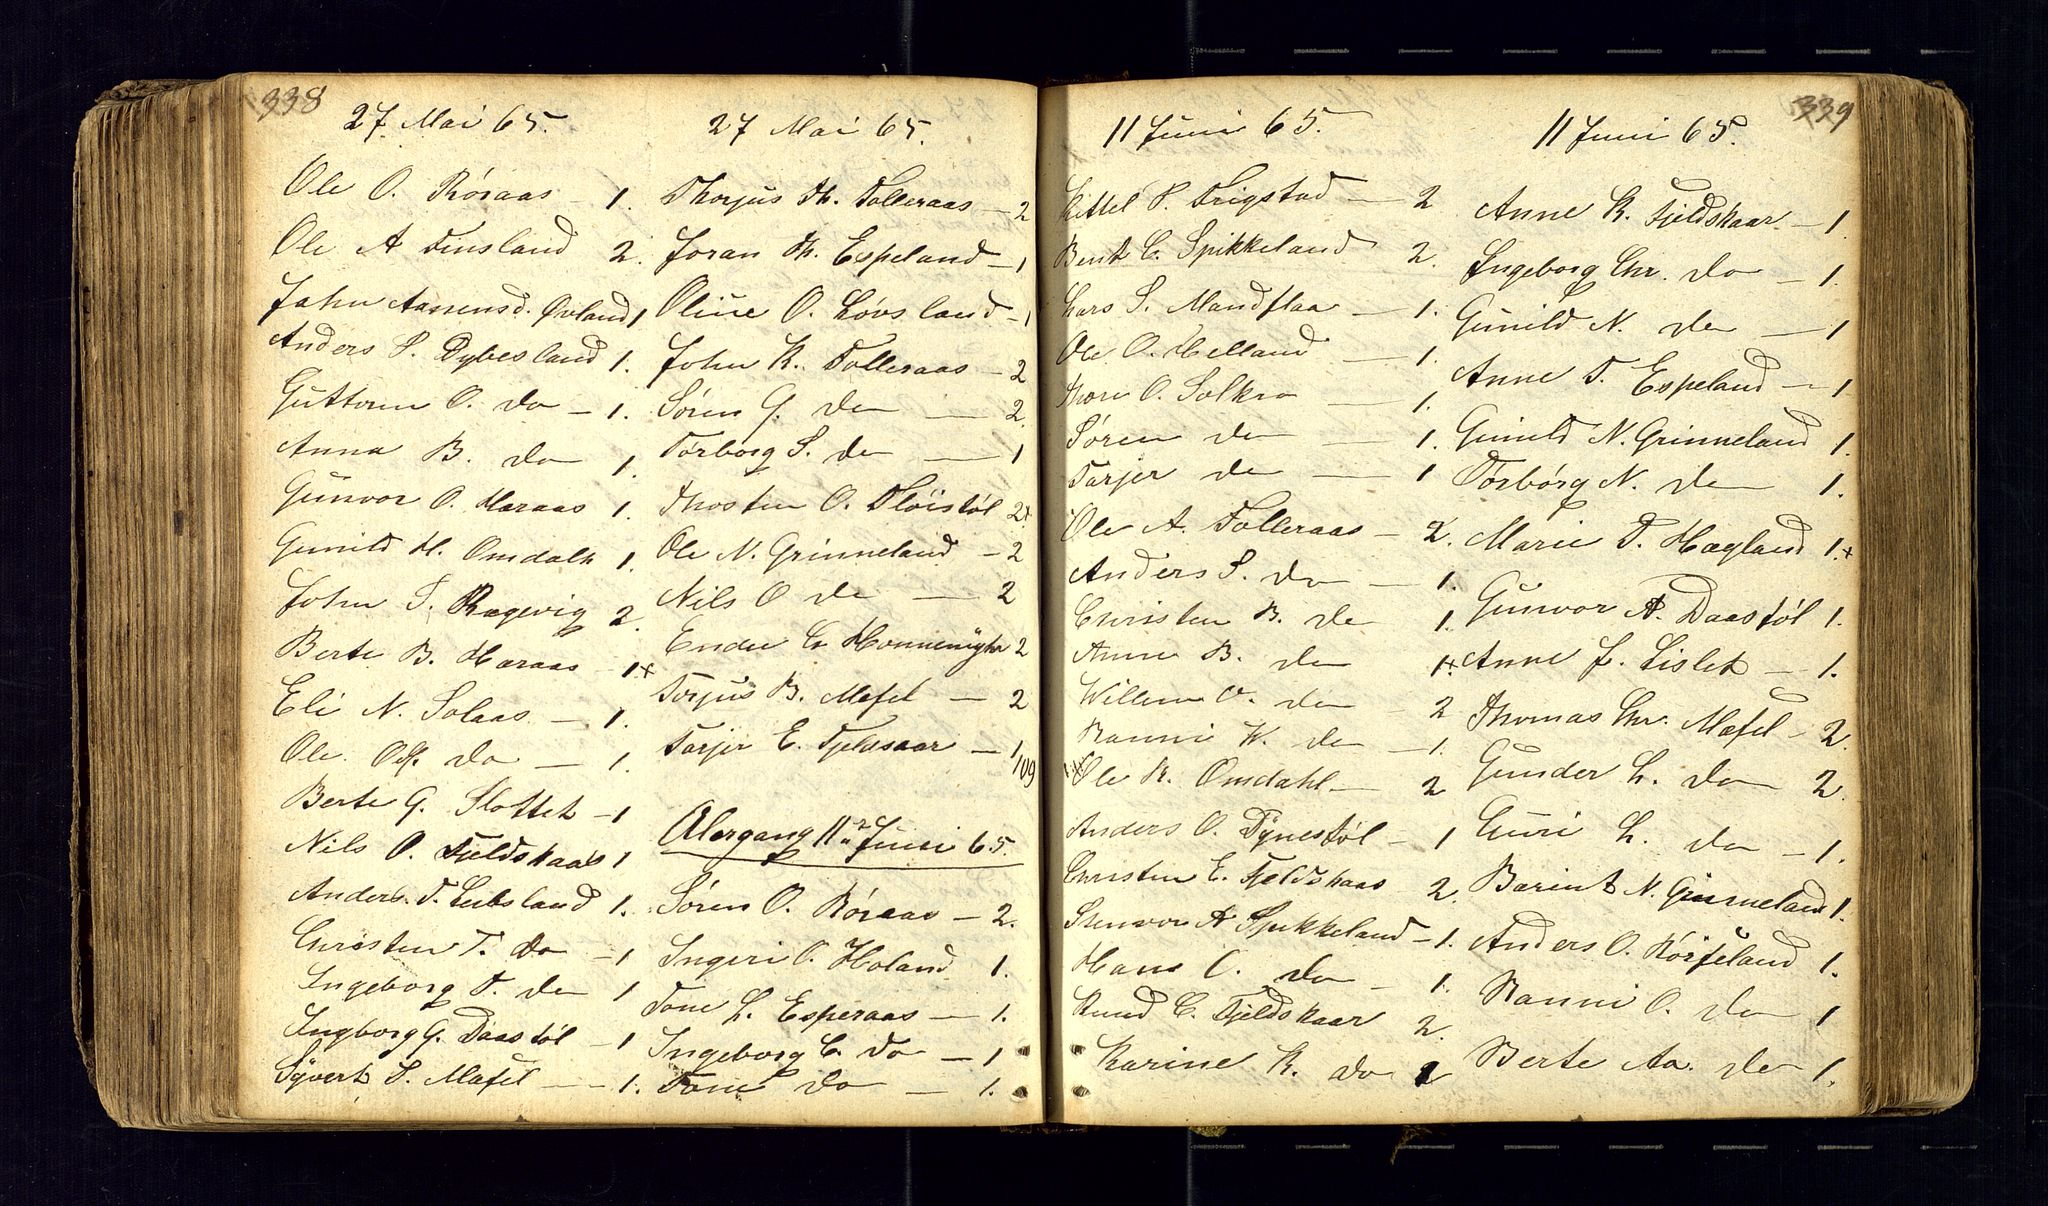 338
27 Mai 65.
Ole O. Røraas - 1.
Ole A Finsland 2.
John Aanensd. Øvland 1
Anders S. Dybesland 1.
Guttorm O. do - 1.
Anna B. do 1.
Gunvor O. Haraas 1.
Gunild H. Omdalh 1.
John T. Ragevig 2.
Berte B. Haraas - 1.+
Eli N. Solaas - 1.
Ole do - 1.
Berte G. Slottet - 1
Nils O. Fjeldskaas 1
Anders. T. Eubsland 1.
Christen T. do - 1
Ingeborg T. do 1
Ingborg G. Daastøl - 1
Syvert S. Mæsel - 1.
27 Mai 65.
Thorjus Th. Tolleraas - 2
Joran Th. Espeland - 1
Oline O. Løvsland - 1
John K. Tolleraas - 2
Søren G. do - 2.
Torborg S. do - 1
Thosten O. Fløistøl 2+
Ole N. Grinneland - 2
Nils O do - 2
Endre Honnemyhr 2
Torjus B. Mæsel - 2
Tarjer E. Fjeldskaar - 1
109
Altergang 11te Juni 65.
Søren O. Røraas - 2.
Ingeri O. Holand 1.
Tone L. Esperaas - 1.
Ingeborg C. do - 1
Tone do - 1.
339
11 Juni 65.
Kittel P. Frigstad - 2
Berit C. Spikkeland 2.
Lars S. Mandflaa - 1.
Ole O. Helland - 1.
Thore O. Solkro - 1.
Søren do - 1.
Tarjer do - 1
Ole A. Tolleraas - 2.
Anders S. do - 1.
Christen B. do 1.
Anne B. do 1+
Willem O. do - 2
Ranni K. do - 1.
Ole K. Omdahl - 2
Anders O. Dynestøl - 1
Christen E. Fjeldskaas 2.
Gunvor A Spikkeland - 1.
Hans C. do - 1.
Knud C. Fjeldskaar 2.
Karine K. do 2
11 Juni 65.
Anne K. Fjeldskaar - 1.
Ingeborg Chr. do - 1.
Gunild N. do - 1
Anne T. Espeland - 1
Gunild N. Grinneland 1.
Torborg N. do 1.
Marie T. Hægland 1.+
Gunvor A. Daastøl 1.
Anne L. Lislet - 1.
Thomas Chr. Mæsel - 2.
Gunder L. do 2.
Guri L. do - 1.
Barint N. Grinneland 1.
Anders O. Røisland 1.
Ranni O. do 1
Berte Aa. do 1.